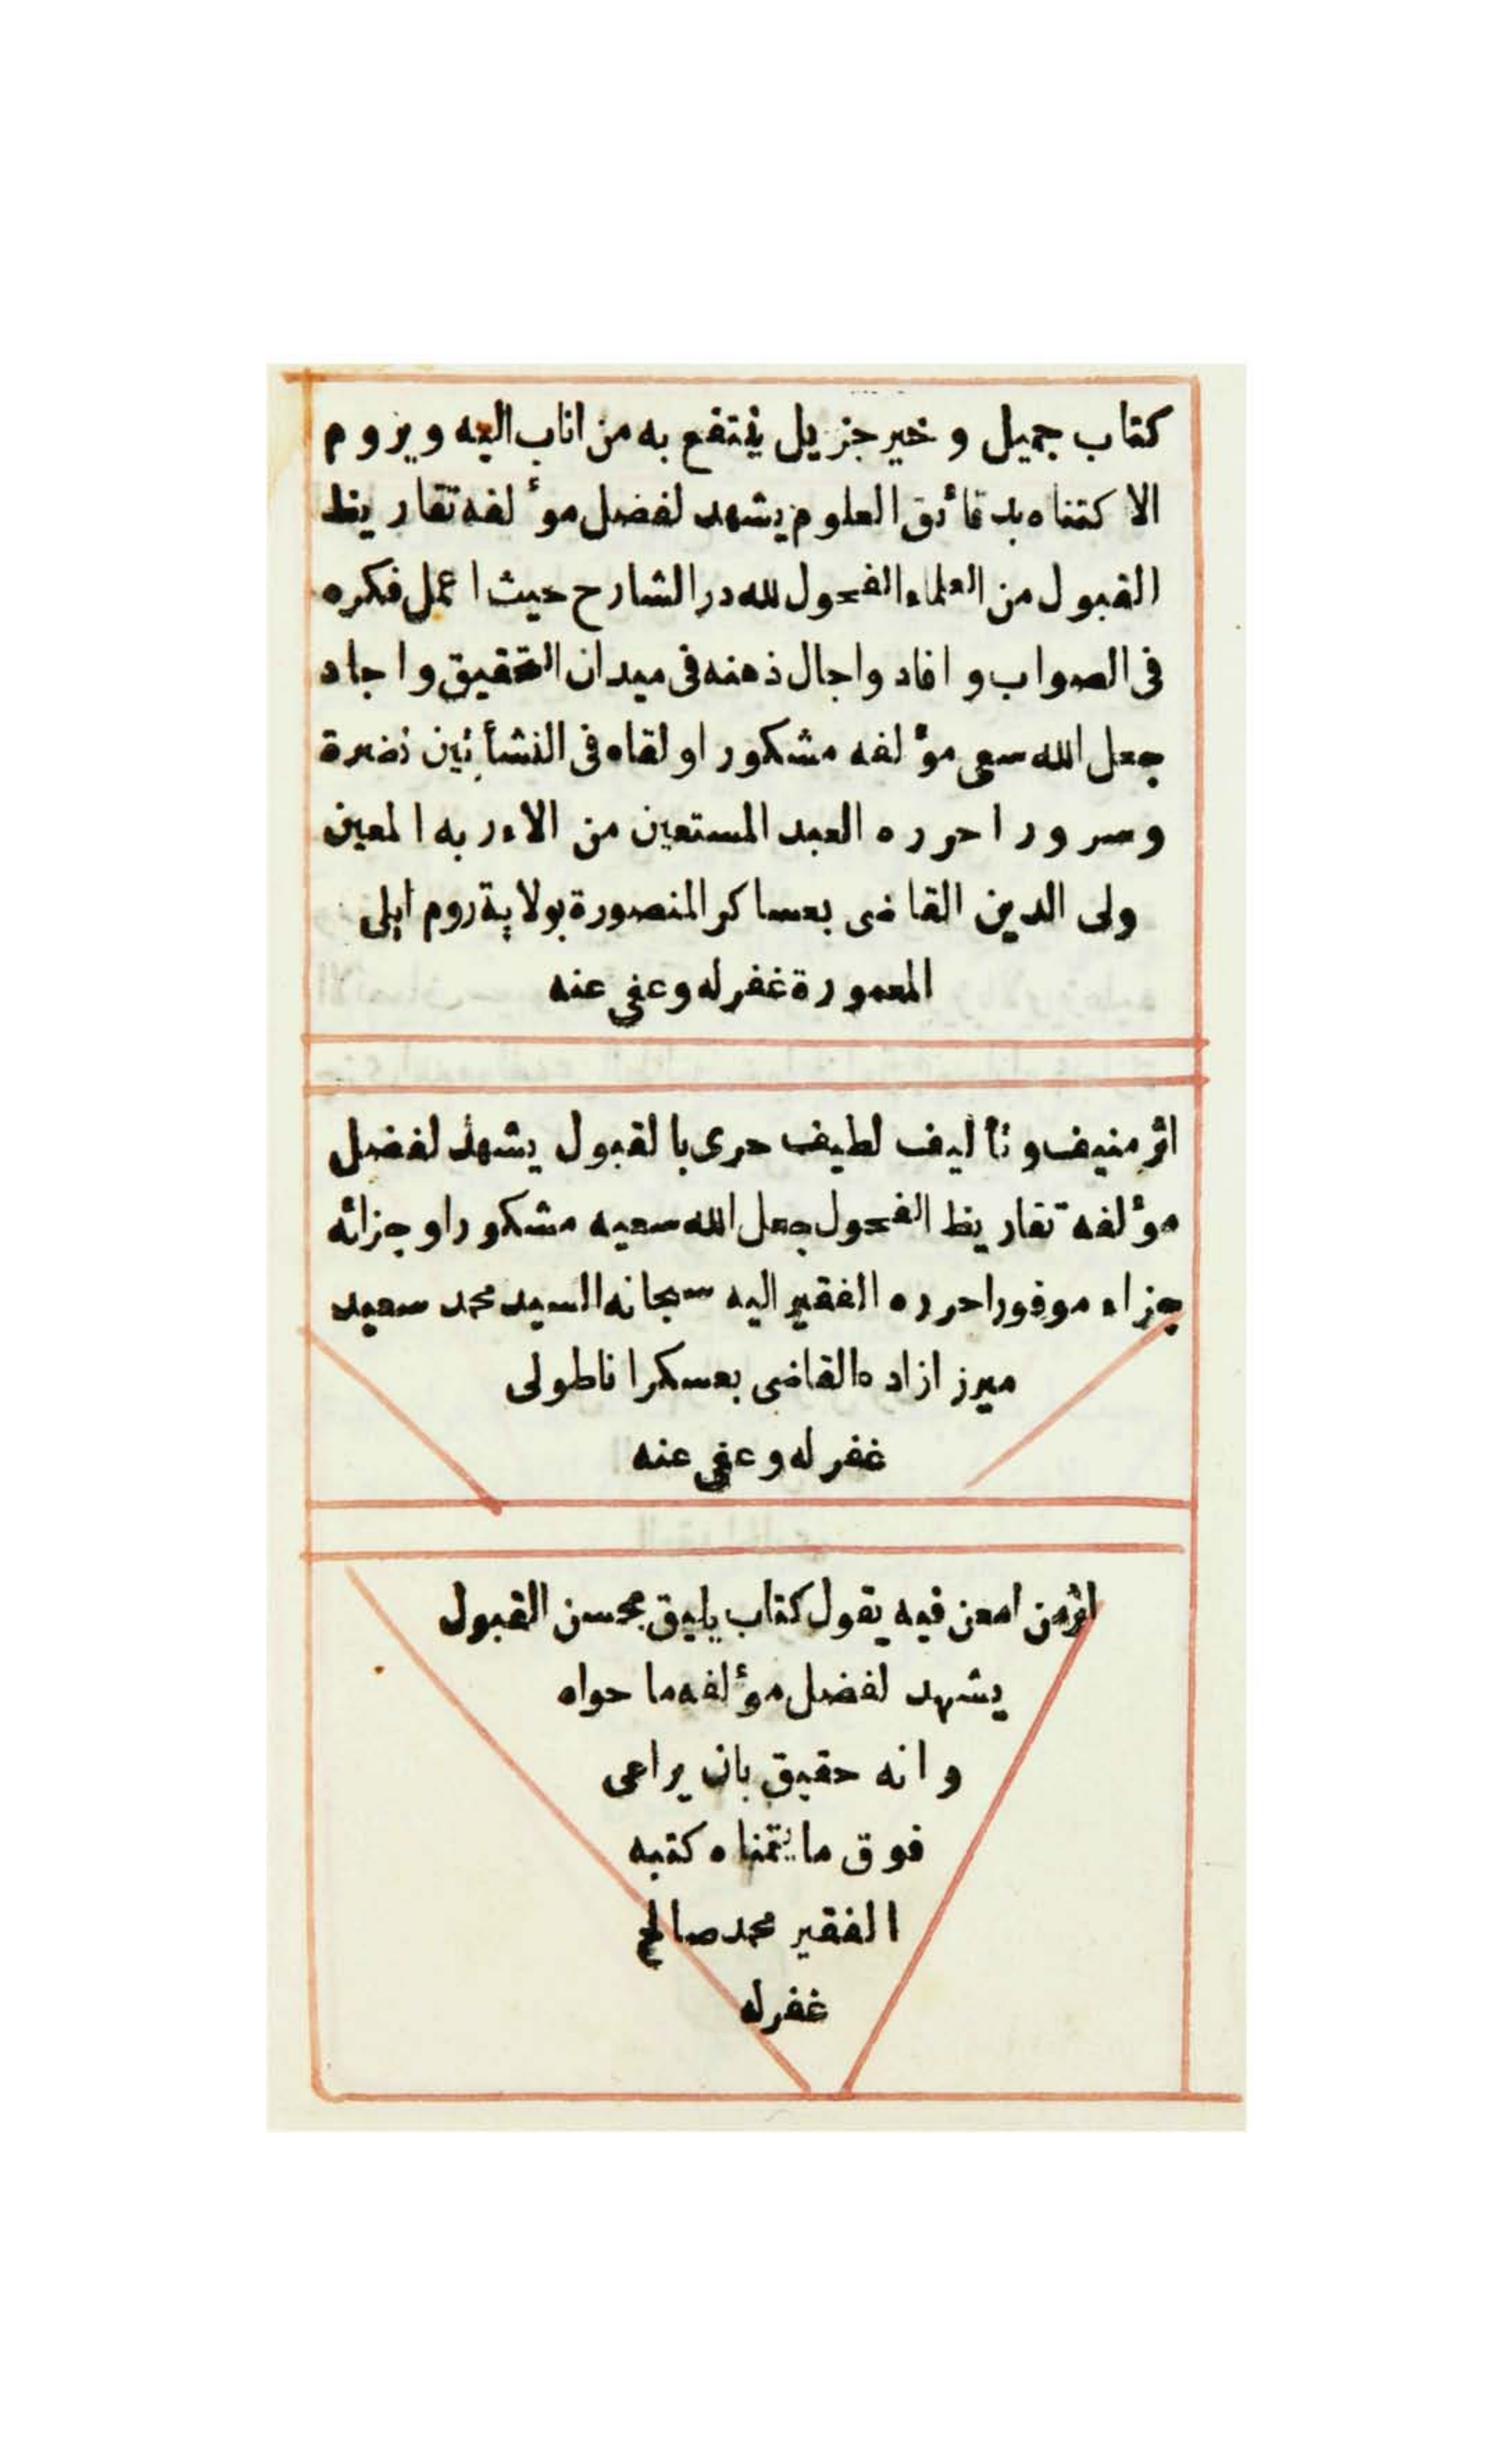 كتاب جميل و خير جزيل ينتفع به من اناب اليه و يروم
الاكتناه بدقائق العلوم يشهد لفضل مؤلفه تقاريظ
القبول من العلماء الفحول لله در الشارح حيث اعمل فكره
فى الصواب و افاد واجال ذهنه فى ميدان التحقيق و اجاد
جعل الله سعى مؤلفه مشكورا و لقاه فى النشأتين نضرة
وسرورا حرره العبد المستعين من ربه المعين
ولى الدين القاضى بعساكر المنصورة بولاية روم ايلى
المعمورة غفر له وعفى عنه
اثر منيف و تأليف لطيف حرى بالقبول يشهد لفضل
مؤلفه تقاريظ الفحول جعل الله سعيه مشكورا وجزائه
جزاء موفورا حرره الفقير اليه سبحانه السيد محمد سعيد
ميرزا زاده القاضى بعسكر اناطولى
غفر له وعفى عنه
اثر من امعن فيه يقول كتاب يليق بحسن القبول
يشهد لفضل مؤلفه ما حواه
و انه حقيق بان يراعى
فوق ما يتمناه كتبه
الفقير محمد صالح
غفر له